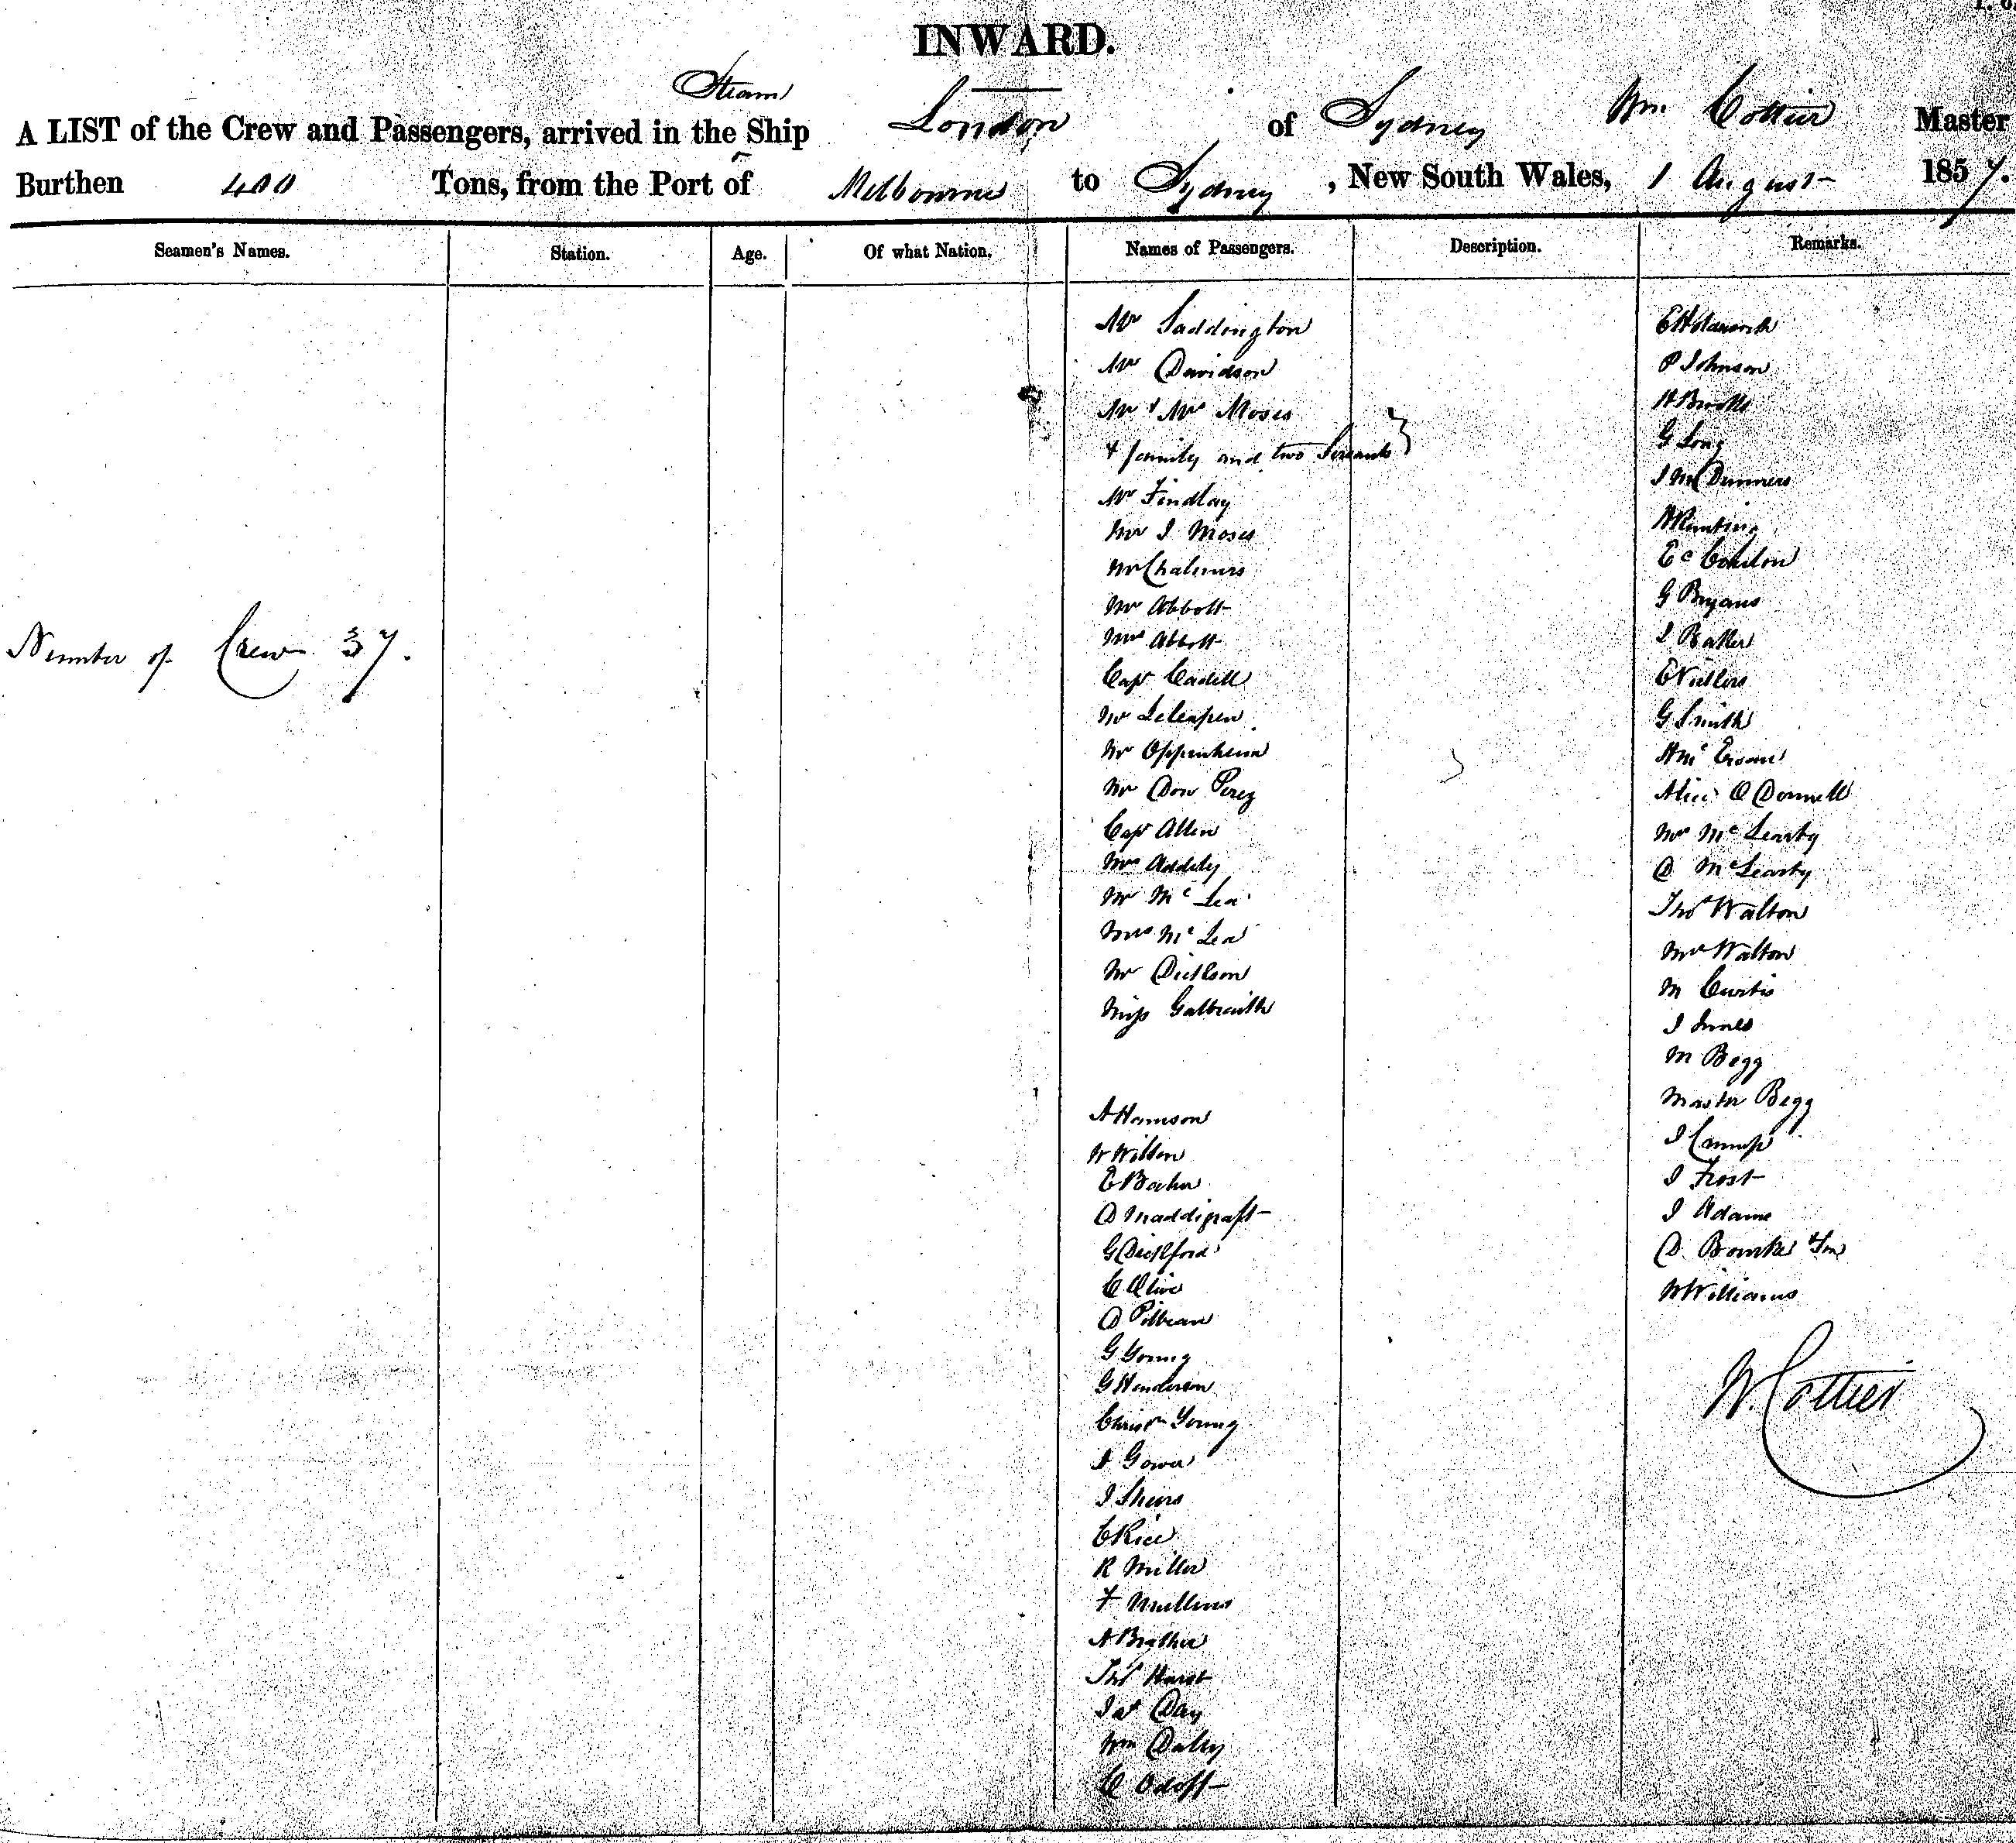 INWARD.
Steam
A LIST of the Crew and Passengers, arrived in the Ship London of Sydney Wm. Cottier Master
Burthen 400 Tons, from the Port of Melbourne to Sydney, New South Wales, 1 August 1857.
Seamen's Names. Station. Age. Of what Nation. Names of Passengers. Description. Remarks.
Number of Crew 37.
Mr Saddington
Mr Davidson
Mr & Mrs Moses
& family and two Servants }
Mr Findlay
Mr I Moses
Mr Chalmers
Mr Abbott
Mrs Abbott
Capt Cadell
Mr
Mr Oppenheim
Mr Don Perez
Capt Allen
Mrs Addely
Mr Mc Lea
Mrs Mc Lea
Mr Dickson
Miss Galbraith
A Harrison
W Wilson
E
D
G Dickford
C Olive
D Pilbean
G Young
G Henderson
Christr Young
A Gower
I Sheirs
C Rice
R Miller
F Mullins
A
Thos Hurst
Jas Day
Wm Daley
C
E Holdsworth
P Johnson
H Brooks
G Long
I
A
E C
G Bryans
I Baker
E Villers
G Smith
A Mc
Alice O Donnell
Mr Mc Learty
D McLearty
Thos Walton
Mrs Walton
M Curtis
I Innes
M Begg
Master Begg
I
I Frost
I Adams
D. Bourke & Son
W Williams
W. Cottier